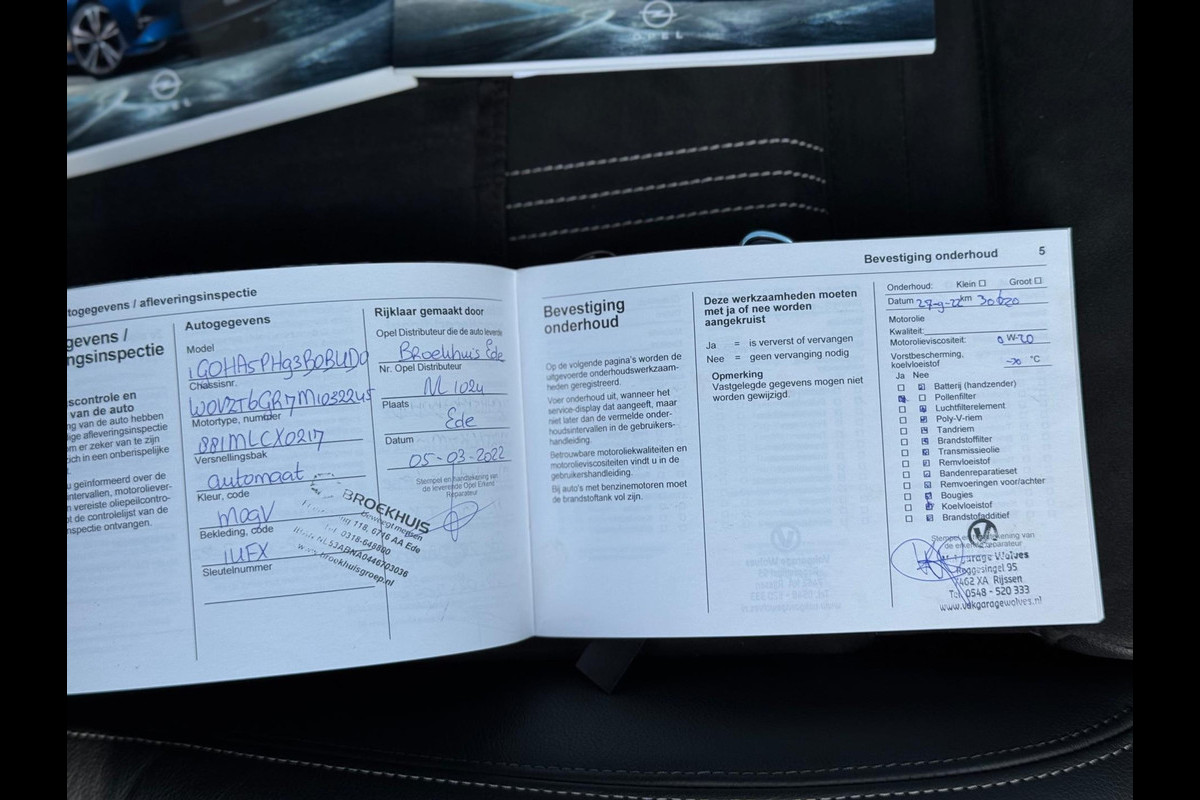 OPEL
OPEL
togegevens / afleveringsinspectie
gevens /
ngsinspectie
scontrole en
van de auto
ng van de auto hebben
lige afleveringsinspectie
om er zeker van te zijn
ich in een onberispelijke
u geïnformeerd over de
ntervallen, motoroliever-
n vereiste oliepeilcontro-
t de controlelijst van de
nspectie ontvangen.
Autogegevens
Model
Chassisnr.
Motortype, nummer
881MLCX0217
Versnellingsbak
automaat
Kleur, code
MOGV
Bekleding, code
IUFX
Sleutelnummer
BROEKHUIS
Beweegt mensen
118, 6716 AA Ede
Tel. 0318-648880
www.broekhuisgroep.nl
Rijklaar gemaakt door
Opel Distributeur die de auto leverde
Broekhuis Ede
Nr. Opel Distributeur
M 1024
Plaats
Ede
Datum
05-03-2022
Stempel en handtekening van
de leverende Opel Erkend
Reparateur
Bevestiging onderhoud 5
Bevestiging
onderhoud
Op de volgende pagina's worden de
uitgevoerde onderhoudswerkzaam-
heden geregistreerd.
Voer onderhoud uit, wanneer het
service-display dat aangeeft, maar
niet later dan de vermelde onder-
houdsintervallen in de gebruikers-
handleiding.
Betrouwbare motoroliekwaliteiten en
motorolieviscositeiten vindt u in de
gebruikershandleiding.
Bij auto's met benzinemotoren moet
de brandstoftank vol zijn.
Deze werkzaamheden moeten
met ja of nee worden
aangekruist
Ja = is ververst of vervangen
Nee = geen vervanging nodig
Opmerking
Vastgelegde gegevens mogen niet
worden gewijzigd.
Onderhoud: Klein Groot
Datum 27-9-22 km 30620
Motorolie
Kwaliteit:
Motorolieviscositeit: 0 W-20
Vorstbescherming,
koelvloeistof °C
Ja Nee
Batterij (handzender)
Pollenfilter
Luchtfilterelement
Poly-V-riem
Tandriem
Brandstoffilter
Transmissieolie
Remvloeistof
Bandenreparatieset
Remvoeringen voor/achter
Bougies
Koelvloeistof
Brandstofadditief
Stempel en handtekening van
de erkende reparateur
Garage Wolves
Roggesingel 95
7462 XA Rijssen
Tel. 0548 - 520 333
www.vakgaragewolves.nl